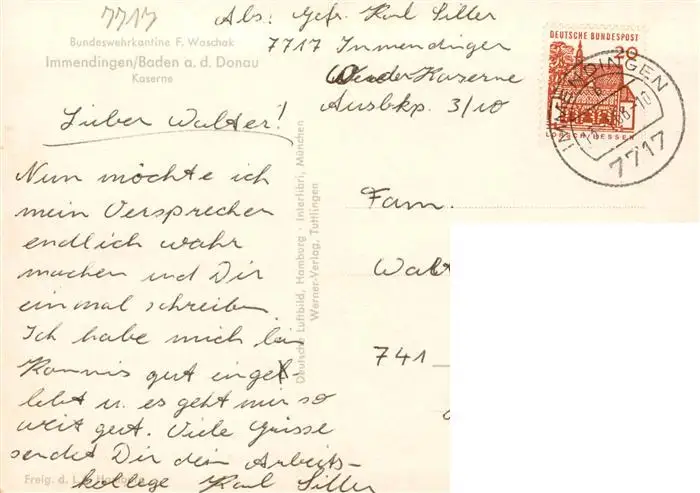 7717
Abs: Gefr. Karl Siller
7717 Immendingen
Kaserne
Ausbkp. 3/10
Bundeswehrkantine F. Waschak
Immendingen/Baden a. d. Donau
Kaserne
DEUTSCHE BUNDESPOST
20
LORSCH HESSEN
IMMENDINGEN
7717
Lieber Walter!
Nun möchte ich
mein Versprechen
endlich wahr
machen und Dir
einmal schreiben.
Ich habe mich bei
Kommis gut einge-
lebt u. es geht mir so
weit gut. Viele Grüsse
sendet Dir dein Arbeits-
kollege Karl Siller
Deutsche Luftbild, Hamburg · Interlibri, München
Werner-Verlag, Tuttlingen
Fam.
Walt
741
Freig. d. L. Hamburg